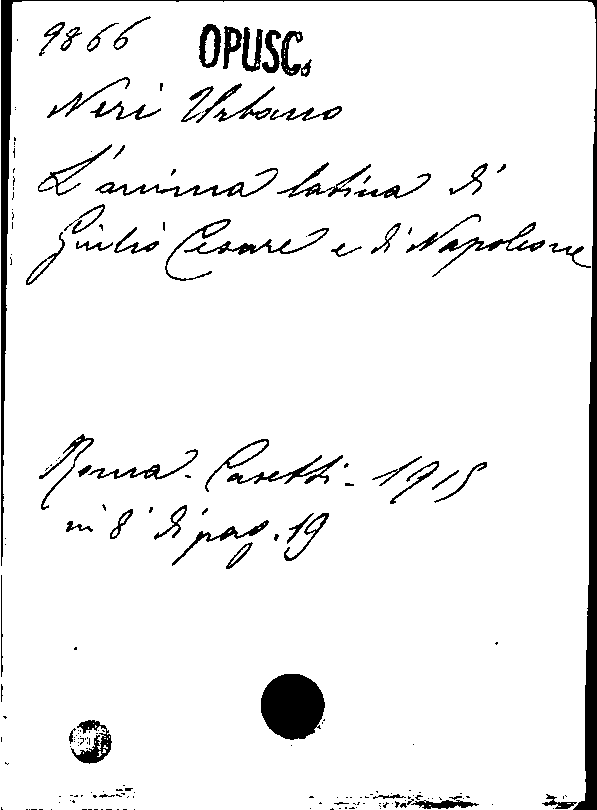 9866 OPUSC.
Neri Urbano
L'anima latina di
Giulio Cesare e di Napoleone
Roma - Casetti - 1915
in 8° di pag. 19